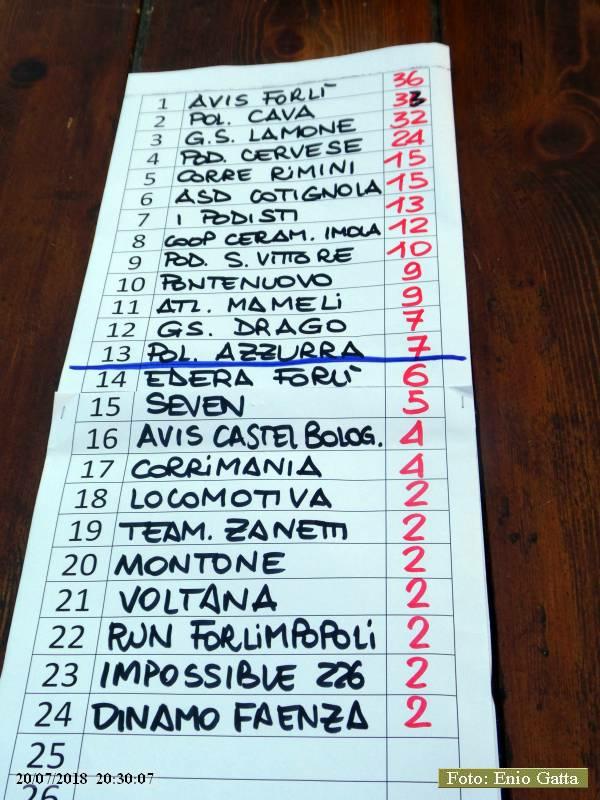 1 AVIS FORLÌ 36
2 POL. CAVA 33
3 G.S. LAMONE 32
4 POD. CERVESE 24
5 CORRE RIMINI 15
6 ASD COTIGNOLA 15
7 I PODISTI 13
8 COOP CERAM. IMOLA 12
9 POD. S. VITTORE 10
10 PONTENUOVO 9
11 ATL. MAMELI 9
12 GS. DRAGO 7
13 POL. AZZURRA 7
14 EDERA FORLÌ 6
15 SEVEN 5
16 AVIS CASTEL BOLOG. 4
17 CORRIMANIA 4
18 LOCOMOTIVA 2
19 TEAM. ZANETTI 2
20 MONTONE 2
21 VOLTANA 2
22 RUN FORLIMPOPOLI 2
23 IMPOSSIBLE 226 2
24 DINAMO FAENZA 2
25
26
20/07/2018 20:30:07
Foto: Enio Gatta